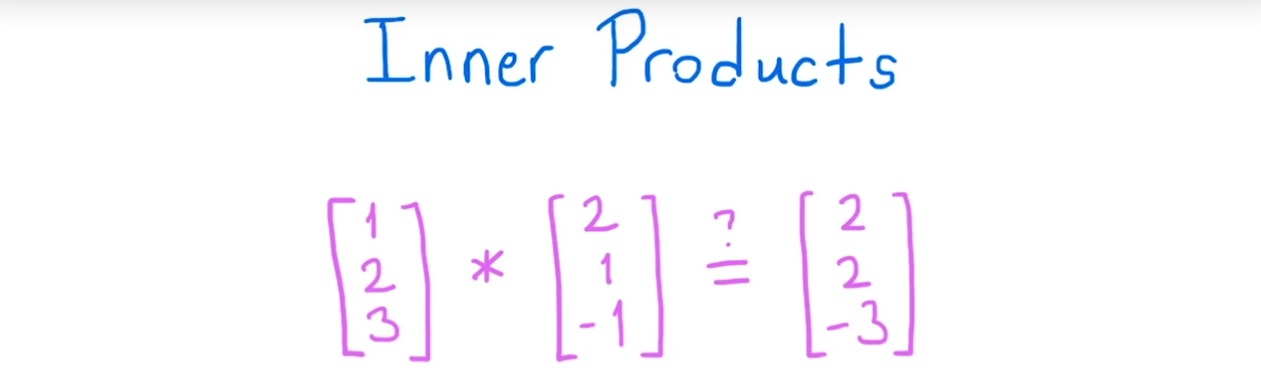 Inner Products
[1 2 3] * [2 1 -1] ?= [2 2 -3]